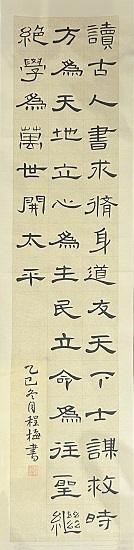 讀古人書求脩身道友天下士謀救時
方為天地立心為生民立命為往聖繼
絕學為萬世開太平
乙巳冬月程梅書